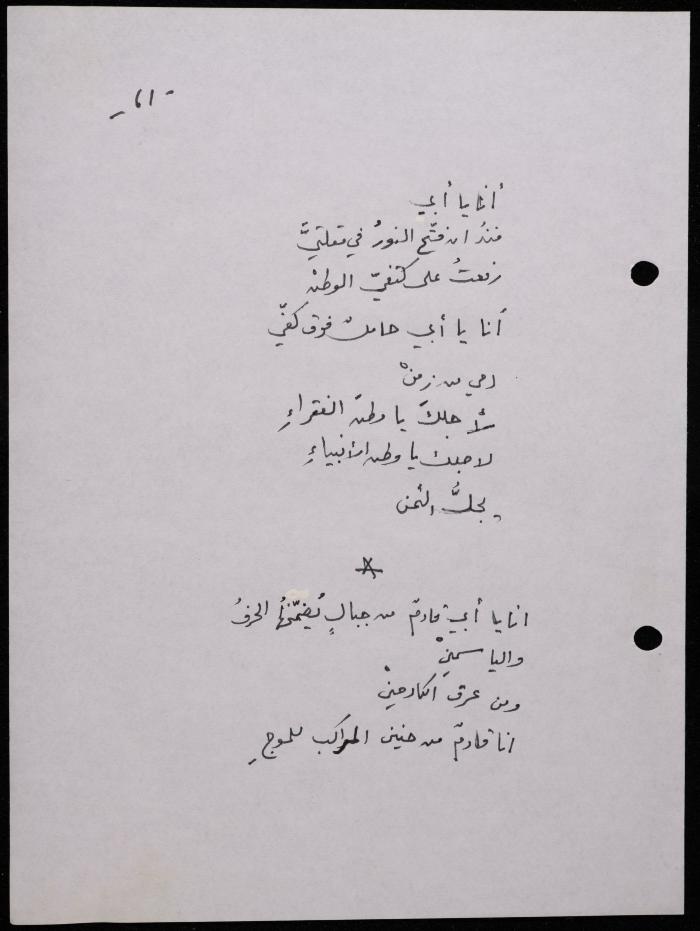 -١٦-
أنا يا أبي
منذُ ان فتّح النورُ في مقلتيَّ
رفعتُ على كتفيّ الوطنْ
أنا يا أبي حاملٌ فوق كفّي
دمي من زمنْ
لأجلكَ يا وطنَ الفقراءِ
لاجلك يا وطن الأنبياءِ
يجلُّ الثمن
انا يا أبي قادمٌ من جبالٍ يُضمّخُها الحرفُ
والياسمينْ
ومن عرق الكادحينْ
انا قادمٌ من حنين المراكب للموجِ